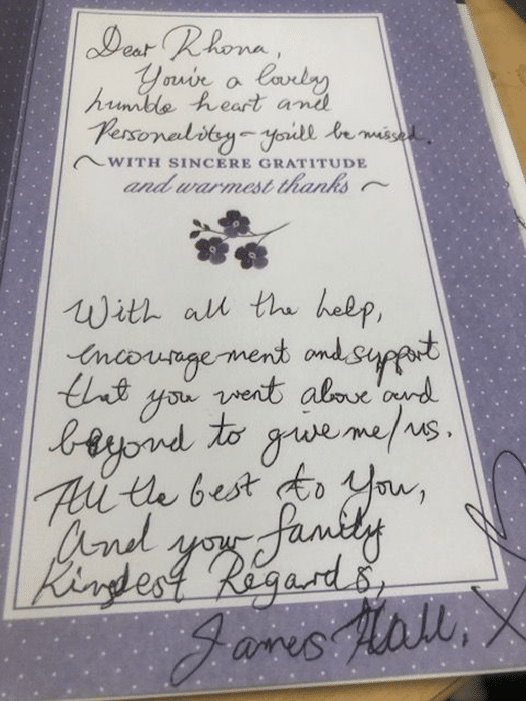 Dear Rhona,
You're a lovely
humble heart and
Personality - you'll be missed.
~ WITH SINCERE GRATITUDE
and warmest thanks ~
With all the help,
encourage-ment and support
that you went above and
beyond to give me/us.
All the best to You,
And your family
Kindest Regards,
James Hall, X